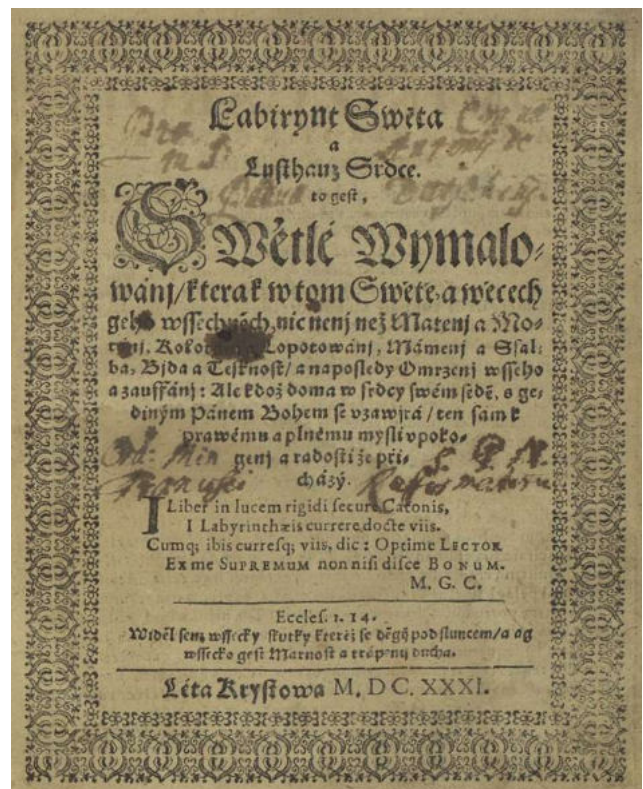 Labirynt Swěta
a
Lusthauz Srdce.
to gest,
SWětlé Wymalo-
wánj/kterak w tom Swětě a wěcech
geho wssechněch, nic nenj než Matenj a Mo-
tánj, Kolotánj a Lopotowánj, Mámenj a Ssal-
ba, Bjda a Tesknost/ a naposledy Omrzenj wsseho
a zauffánj: Ale kdož doma w srdcy swém sedě, s ge-
diným Pánem Bohem se vzawjrá/ ten sam k
prawému a plnému mysli vpoko-
genj a radosti že při-
cházý.
I Liber in lucem rigidi secure Catonis,
I Labyrinthæis currere docte viis.
Cumq; ibis curresq; viis, dic: Optime LECTOR
Ex me SUPREMUM non nisi disce BONUM.
M. G. C.
Eccles. 1. 14.
Widěl sem wssecky skutky kteréž se děgj pod sluncem/a ag
wssecko gest Marnost a trápenj ducha.
Léta Krystowa M. DC. XXXI.